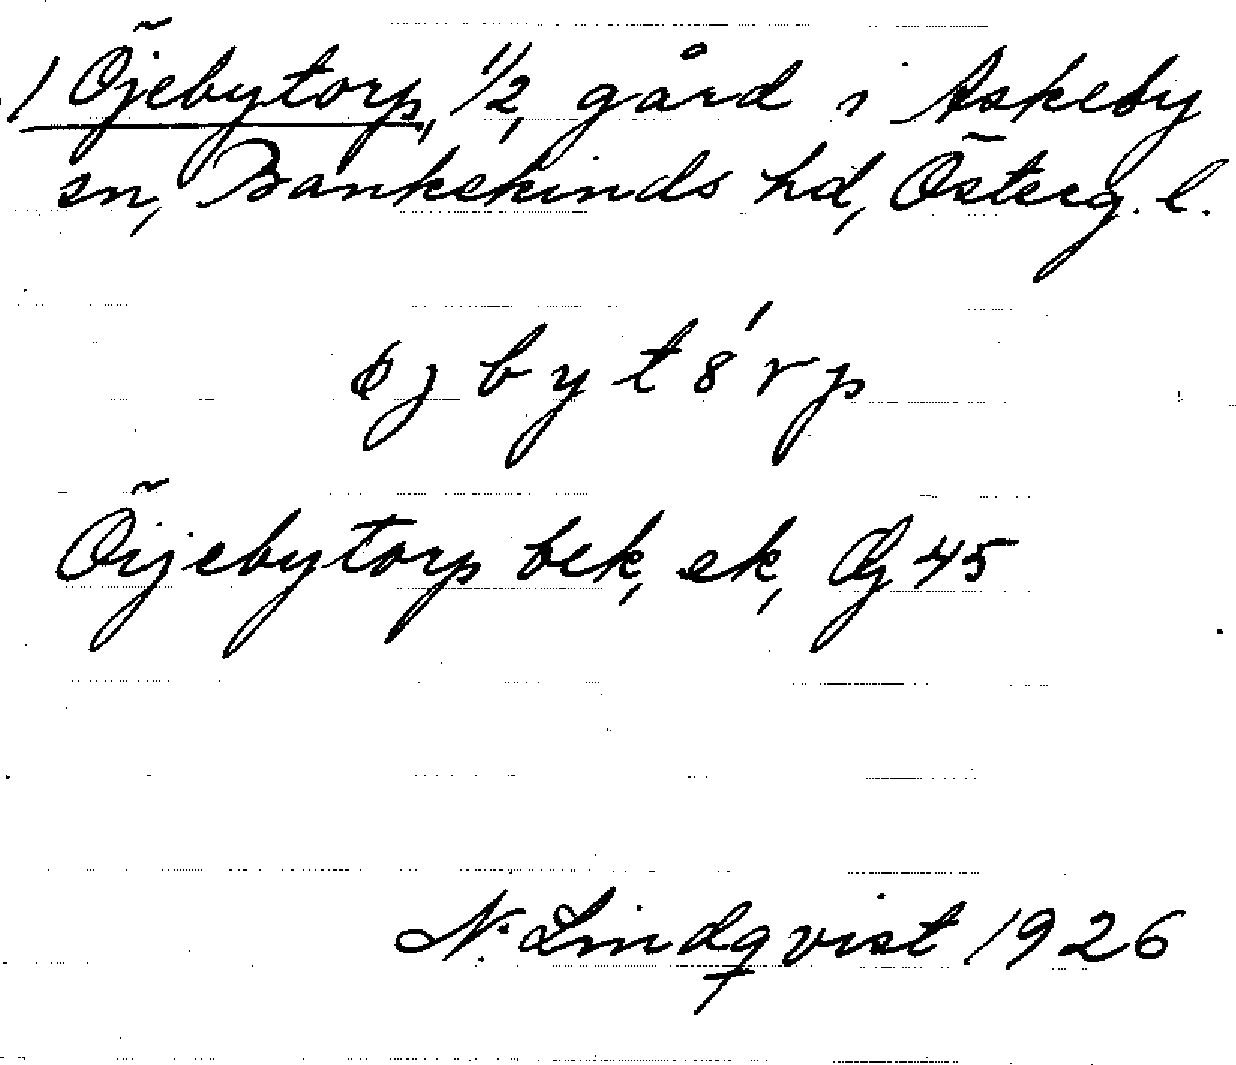 1 Öjebytorp, 1/2, gård i Askeby
sn, Bankekinds hd, Österg. l.
øjbyt8́rp
Öijebytorp bek, ek, Dj 45
N. Lindqvist 1926